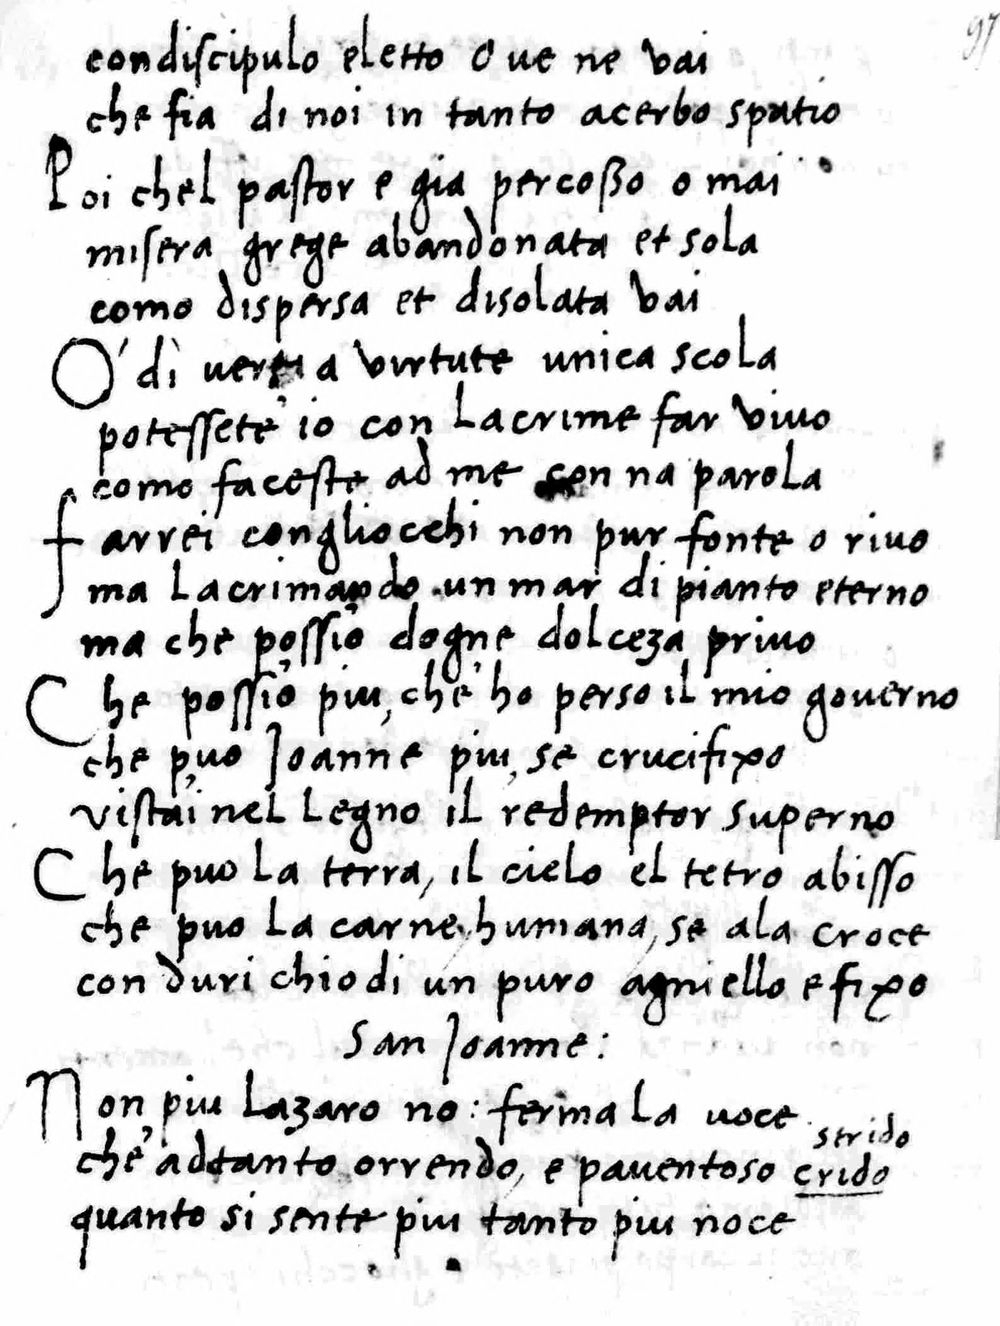 97
condiscipulo eletto o've ne vai
che fia di noi in tanto acerbo spatio
Poi chel pastor e gia percosso o mai
misera grege abandonata et sola
como dispersa et disolata vai
O' di uerita virtute unica scola
potessete' io con lacrime far vivo
como faceste ad me con na parola
farrei congliocchi non pur fonte o rivo
ma lacrimando un mar di pianto eterno
ma che possio' dogne dolceza privo
Che possio' piu, che' ho perso il mio governo
che puo Joanne piu, se crucifixo
vista'i nel legno il redemptor superno
Che puo la terra, il cielo el tetro abisso
che puo la carne humana, se ala croce
con duri chiodi un puro agniello e fixo
San Joanne:
Non piu lazaro no: ferma la uoce
strido
che' ad tanto orrendo, e paventoso crido
quanto si sente piu tanto piu noce